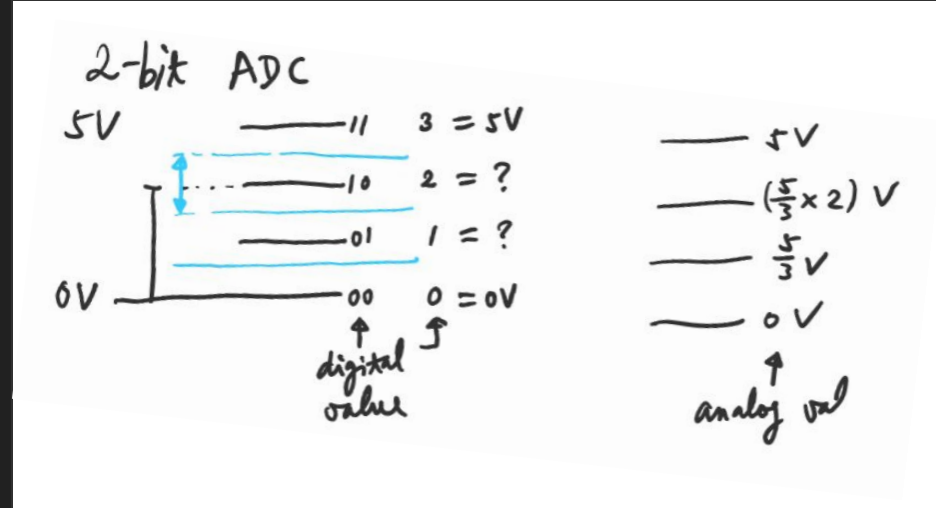 2-bit ADC
5V 11 3 = 5V
10 2 = ?
01 1 = ?
0V 00 0 = 0V
digital
value
5V
(5/3 × 2) V
5/3 V
0 V
analog val